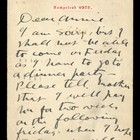 Dear Annie
I am sorry, but I
shall not be able
to come on Friday
as I have to go to
a dinner party.
Please tell mother
that I will pay
for two weeks
on the following
Friday, when I hope